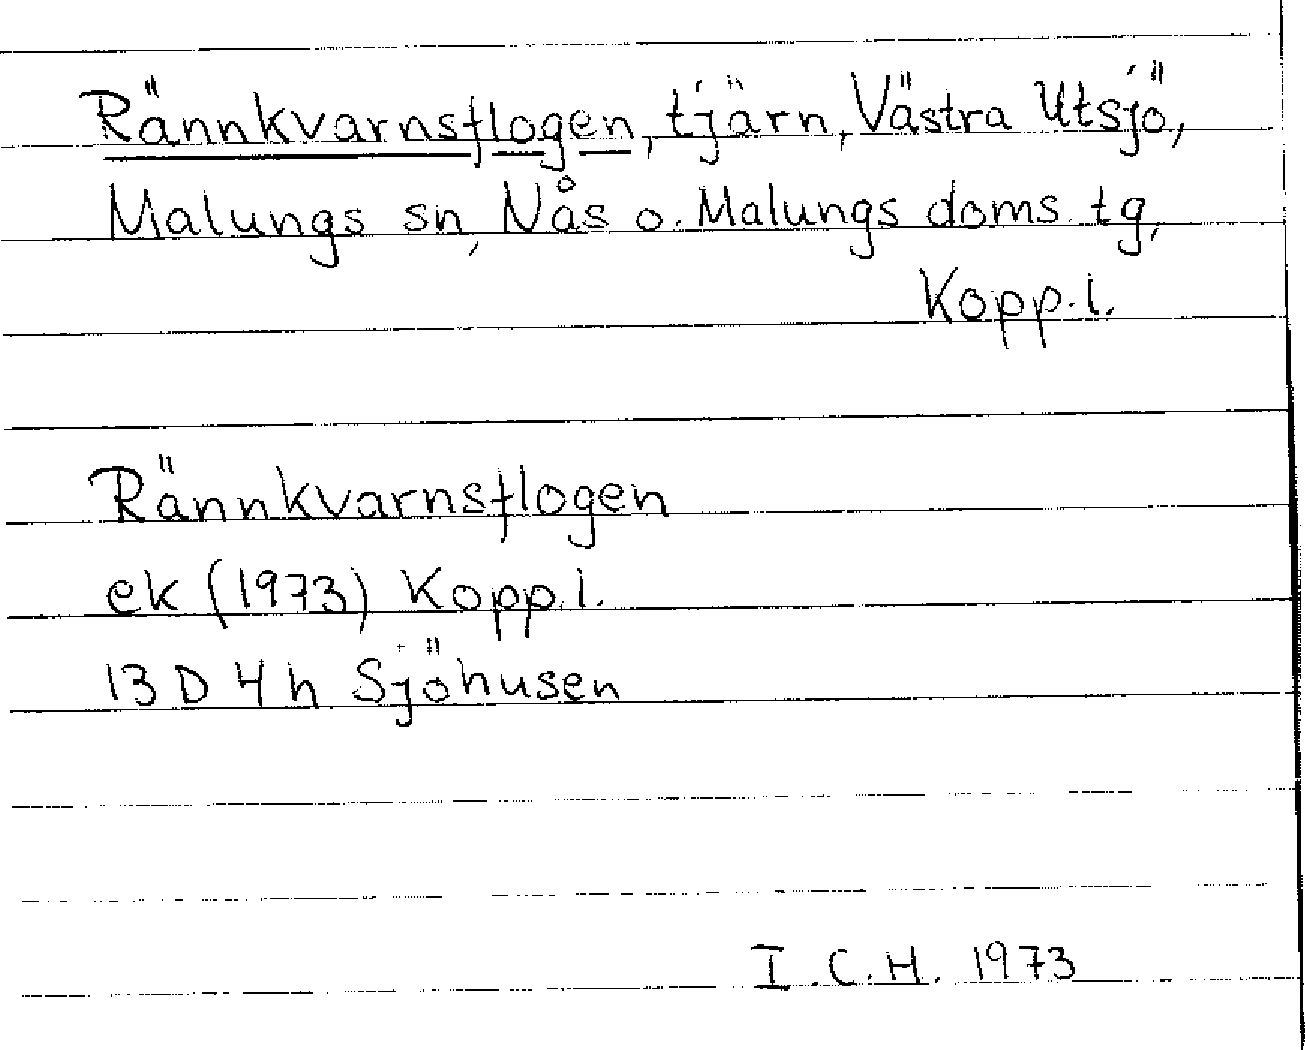 Rännkvarnsflogen, tjärn, Västra Utsjö,
Malungs sn, Nås o. Malungs doms. tg,
Kopp. l.
Rännkvarnsflogen
ek (1973) Kopp. l.
13 D 4 h Sjöhusen
I.C.H. 1973